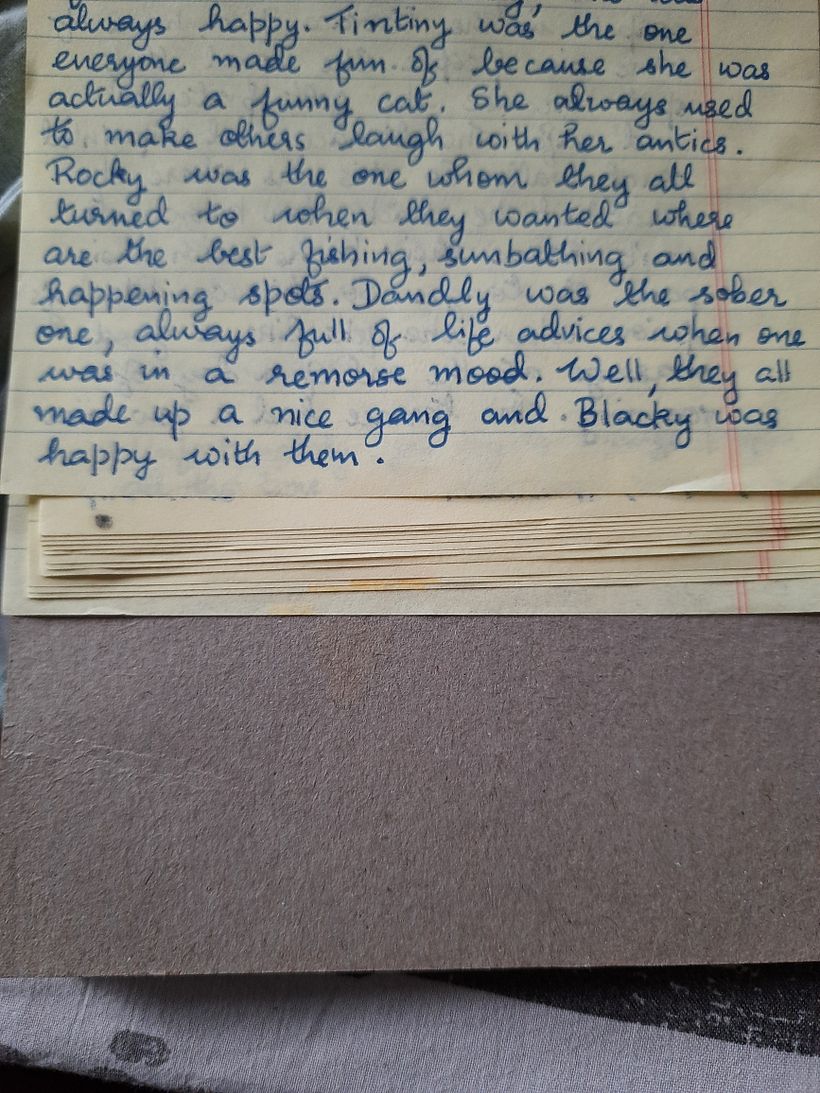 always happy. Tintiny was the one
everyone made fun of because she was
actually a funny cat. She always used
to make others laugh with her antics.
Rocky was the one whom they all
turned to when they wanted where
are the best fishing, sunbathing and
happening spots. Dandly was the sober
one, always full of life advices when one
was in a remorse mood. Well, they all
made up a nice gang and Blacky was
happy with them.